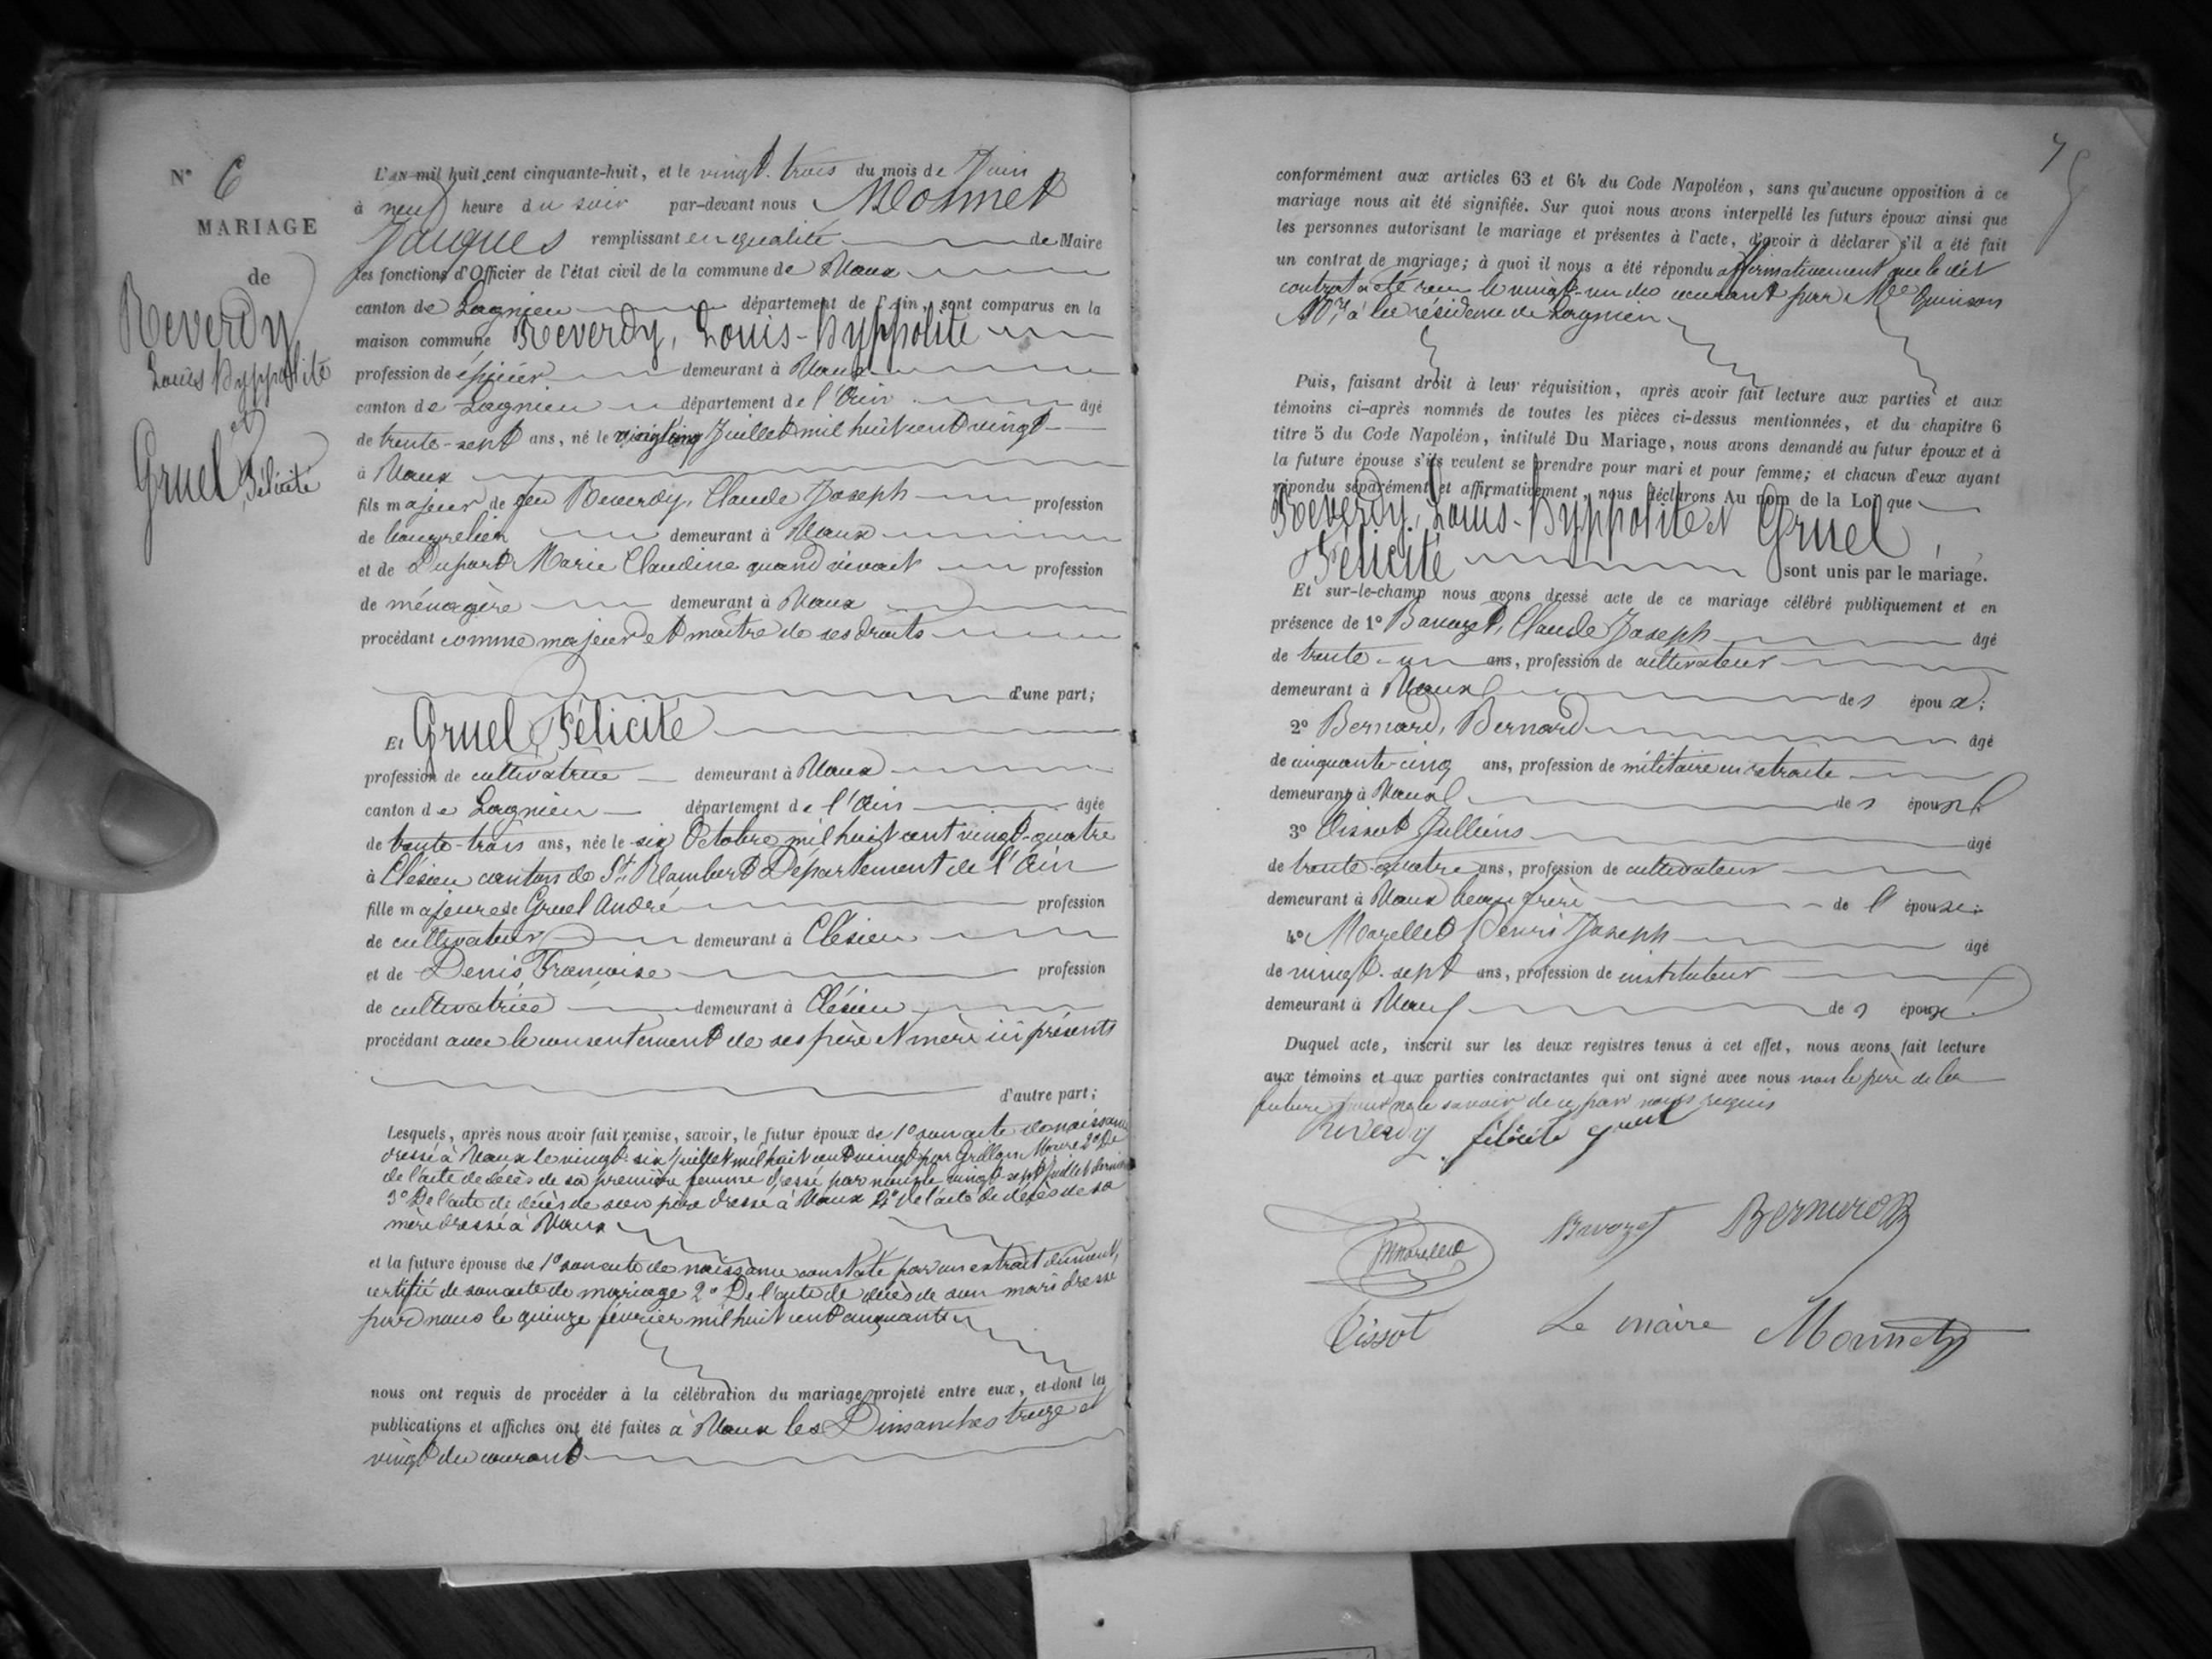 N° 6
MARIAGE
de
Reverdy
Louis Hyppolite
et
Gruel Félicité
L'AN mil huit cent cinquante-huit, et le vingt-trois du mois de Juin
à neuf heure du soir par-devant nous Monnet
Jacques remplissant en qualité de Maire
les fonctions d'Officier de l'état civil de la commune de Vaux
canton de Lagnieu département de l'Ain, sont comparus en la
maison commune Reverdy, Louis-Hyppolite
profession de épicier demeurant à Vaux
canton de Lagnieu département de l'Ain âgé
de trente-sept ans, né le Juillet mil huit cent vingt
à Vaux
fils majeur de feu Reverdy, Claude Joseph profession
de bourrelier demeurant à Vaux
et de Duport Marie Claudine quand vivait profession
de ménagère demeurant à Vaux
procédant comme majeur et maître de ses droits
d'une part;
Et Gruel Félicité
profession de cultivatrice demeurant à Vaux
canton de Lagnieu département de l'Ain âgée
de trente-trois ans, née le six Octobre mil huit cent vingt-quatre
à Clésieu canton de St Rambert Département de l'Ain
fille majeure de Gruel André profession
de cultivateur demeurant à Clésieu
et de Denis Francoise profession
de cultivatrice demeurant à Clésieu
procédant avec le consentement de ses père et mère ici présents
d'autre part;
Lesquels, après nous avoir fait remise, savoir, le futur époux de 1° son acte de naissance
dressé à Vaux le vingt-six Juillet mil huit cent vingt par Maire 2° De
de l'acte de décès de sa première femme dressé par nous le vingt-sept Juillet dernier
3° De l'acte de décès de son père dressé à Vaux 4° de l'acte de décès de sa
mère dressé à Vaux
et la future épouse de 1° son acte de naissance constaté par un extrait dûment
certifié de son acte de mariage 2° De l'acte de décès de son mari dressé
par nous le quinze février mil huit cent cinquante
nous ont requis de procéder à la célébration du mariage projeté entre eux, et dont les
publications et affiches ont été faites à Vaux les Dimanches treize et
vingt du courant
conformément aux articles 63 et 64 du Code Napoléon, sans qu'aucune opposition à ce
mariage nous ait été signifiée. Sur quoi nous avons interpellé les futurs époux ainsi que
les personnes autorisant le mariage et présentes à l'acte, d'avoir à déclarer s'il a été fait
un contrat de mariage; à quoi il nous a été répondu affirmativement que le dit
contrat a été reçu le vingt-un du courant par Me Quinson
Nre à la résidence de Lagnieu
Puis, faisant droit à leur réquisition, après avoir fait lecture aux parties et aux
témoins ci-après nommés de toutes les pièces ci-dessus mentionnées, et du chapitre 6
titre 5 du Code Napoléon, intitulé Du Mariage, nous avons demandé au futur époux et à
la future épouse s'ils veulent se prendre pour mari et pour femme; et chacun d'eux ayant
répondu séparément et affirmativement, nous déclarons Au nom de la Loi que
Reverdy, Louis-Hyppolite et Gruel,
Félicité sont unis par le mariage.
Et sur-le-champ nous avons dressé acte de ce mariage célébré publiquement et en
présence de 1° Bavozet, Claude Joseph âgé
de trente-un ans, profession de cultivateur
demeurant à Vaux des époux;
2° Bernard, Bernard âgé
de cinquante-cinq ans, profession de militaire en retraite
demeurant à Vaux des époux
3° Tissot Jullien âgé
de trente-quatre ans, profession de cultivateur
demeurant à Vaux beau frère de l'épouse;
4° Marellet Henri Joseph âgé
de vingt-sept ans, profession de instituteur
demeurant à Vaux des époux.
Duquel acte, inscrit sur les deux registres tenus à cet effet, nous avons fait lecture
aux témoins et aux parties contractantes qui ont signé avec nous non le père de la
future pour ne le savoir de ce par nous requis
Reverdy félicité gruel
Marellet Bavozet Bernard
Tissot Le maire Monnet